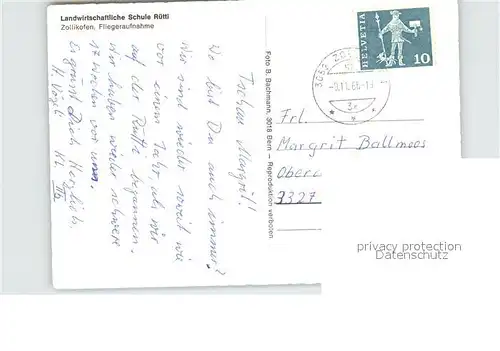 Landwirtschaftliche Schule Rütti
Zollikofen, Fliegeraufnahme
Tschau Margrit!
Wo bist Du auch immer?
Wir sind wieder soweit wie
vor einem Jahr, als wir
auf der Rütti begannen.
Wir haben wieder schwere
17 Wochen vor uns.
Es grüsst Dich Herzlich,
H. Vögeli Kl. IIb
Foto B. Bachmann, 3018 Bern – Reproduktion verboten
HELVETIA
10
3052
Frl.
Margrit Ballmoos
3327
privacy protection
Datenschutz